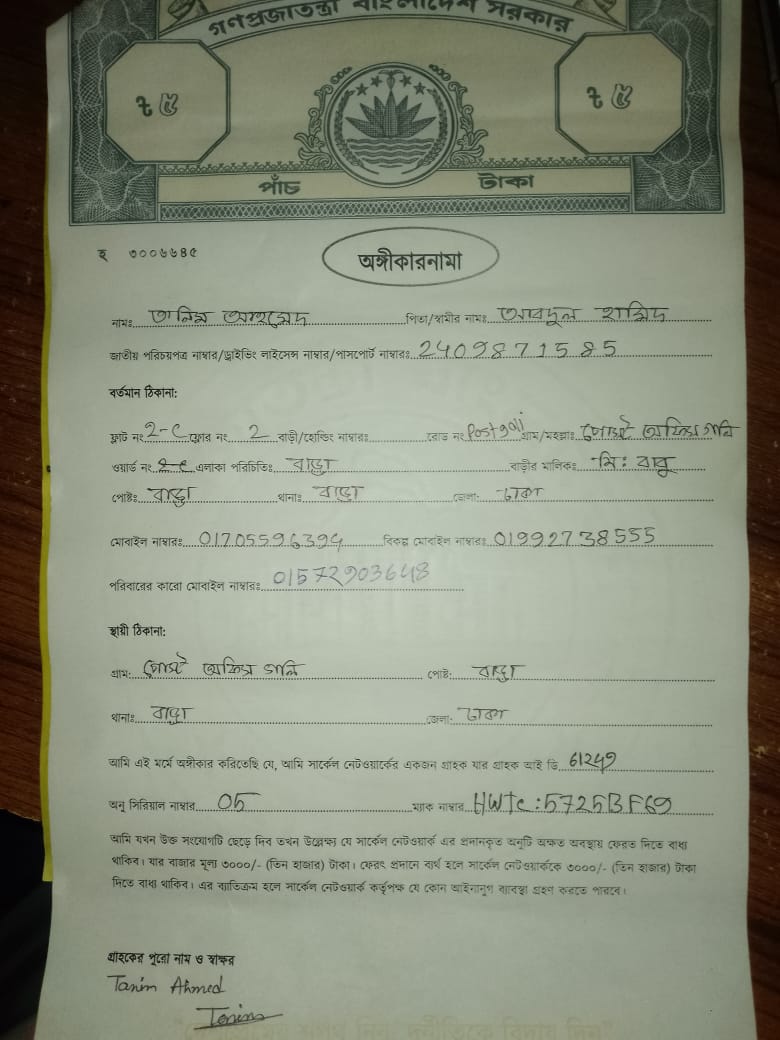 গণপ্রজাতন্ত্রী বাংলাদেশ সরকার
৳ ৫
৳ ৫
পাঁচ টাকা
হ ৩০০৬৬৪৫
অঙ্গীকারনামা
নামঃ তানিম আহমেদ পিতা/স্বামীর নামঃ আবদুল হামিদ
জাতীয় পরিচয়পত্র নাম্বার/ড্রাইভিং লাইসেন্স নাম্বার/পাসপোর্ট নাম্বারঃ 2409871585
বর্তমান ঠিকানা:
ফ্লাট নং 2-C ফ্লোর নং 2 বাড়ী/হোল্ডিং নাম্বারঃ রোড নং Postgoli গ্রাম/মহল্লাঃ পোস্ট অফিস গলি
ওয়ার্ড নং এলাকা পরিচিতিঃ বাড্ডা বাড়ীর মালিকঃ মি: বাবু
পোষ্টঃ বাড্ডা থানাঃ বাড্ডা জেলা: ঢাকা
মোবাইল নাম্বারঃ 01705596394 বিকল্প মোবাইল নাম্বারঃ 01992738555
পরিবারের কারো মোবাইল নাম্বারঃ 01572903648
স্থায়ী ঠিকানা:
গ্রাম: পোস্ট অফিস গলি পোষ্ট: বাড্ডা
থানাঃ বাড্ডা জেলা: ঢাকা
আমি এই মর্মে অঙ্গীকার করিতেছি যে, আমি সার্কেল নেটওয়ার্কের একজন গ্রাহক যার গ্রাহক আই ডি 61249
অনু সিরিয়াল নাম্বার 05 ম্যাক নাম্বার HWTC:5725BF69
আমি যখন উক্ত সংযোগটি ছেড়ে দিব তখন উল্লেখ্য যে সার্কেল নেটওয়ার্ক এর প্রদানকৃত অনুটি অক্ষত অবস্থায় ফেরত দিতে বাধ্য
থাকিব। যার বাজার মূল্য ৩০০০/- (তিন হাজার) টাকা। ফেরৎ প্রদানে ব্যর্থ হলে সার্কেল নেটওয়ার্ককে ৩০০০/- (তিন হাজার) টাকা
দিতে বাধ্য থাকিব। এর ব্যাতিক্রম হলে সার্কেল নেটওয়ার্ক কর্তৃপক্ষ যে কোন আইনানুগ ব্যবস্থা গ্রহণ করতে পারবে।
গ্রাহকের পুরো নাম ও স্বাক্ষর
Tanim Ahmed
Tanim